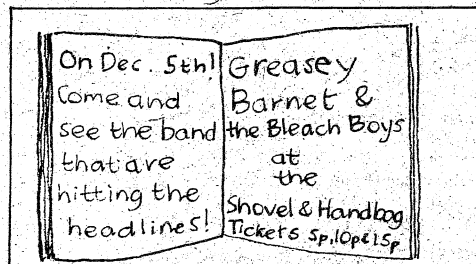 On Dec. 5th!
Come and
see the band
that are
hitting the
headlines!
Greasey
Barnet &
the Bleach Boys
at
the
Shovel & Handbag
Tickets 5p, 10p & 15p